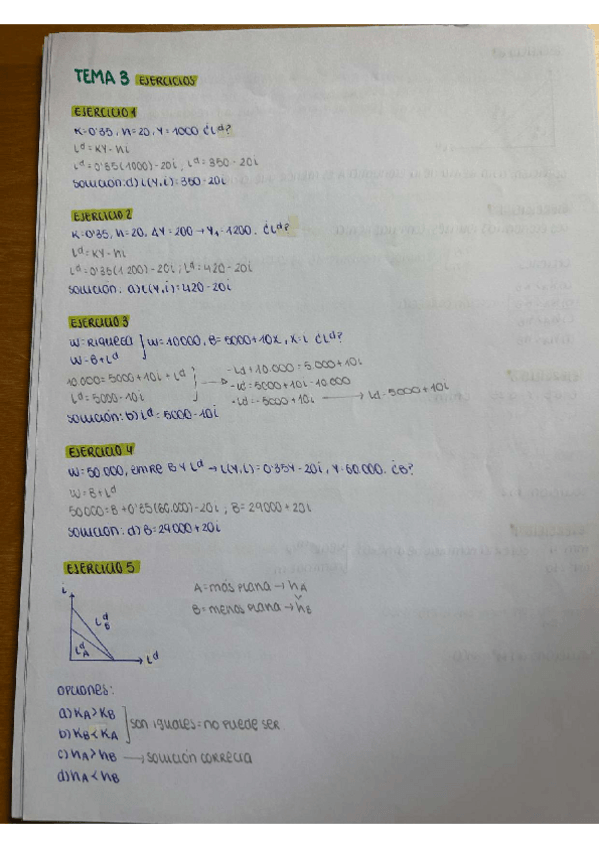 TEMA 3 EJERCICIOS
EJERCICIO 1
K=0'35, n=20, Y=1000 ¿Lᵈ?
Lᵈ=KY-ni
Lᵈ=0'35(1000)-20i, Lᵈ=350-20i
solución: d) L(Y,i)=350-20i
EJERCICIO 2
K=0'35, n=20, ΔY=200→Y₁=1200. ¿Lᵈ?
Lᵈ=KY-ni
Lᵈ=0'35(1200)-20i; Lᵈ=420-20i
solución: a) L(Y,i)=420-20i
EJERCICIO 3
W=Riqueza } W=10000, B=5000+10X, X=i ¿Lᵈ?
W=B+Lᵈ
10.000=5000+10i+Lᵈ
Lᵈ=5000-10i
-Ld+10.000=5.000+10i
-Ld=5000+10i-10.000
-Ld=-5000+10i → Ld=5000+10i
solución: b) Lᵈ=5000-10i
EJERCICIO 4
W=50.000, entre B y Lᵈ → L(Y,i)=0'35Y-20i, Y=60.000. ¿B?
W=B+Lᵈ
50.000=B+0'35(60.000)-20i; B=29000+20i
solución: d) B=29000+20i
EJERCICIO 5
i
Lᵈ_B
Lᵈ_A
Lᵈ
A=más plana→n_A
B=menos plana→n_B
opciones:
a) K_A>K_B
b) K_B<K_A
son iguales=no puede ser
c) n_A>n_B → solución correcta
d) n_A<n_B